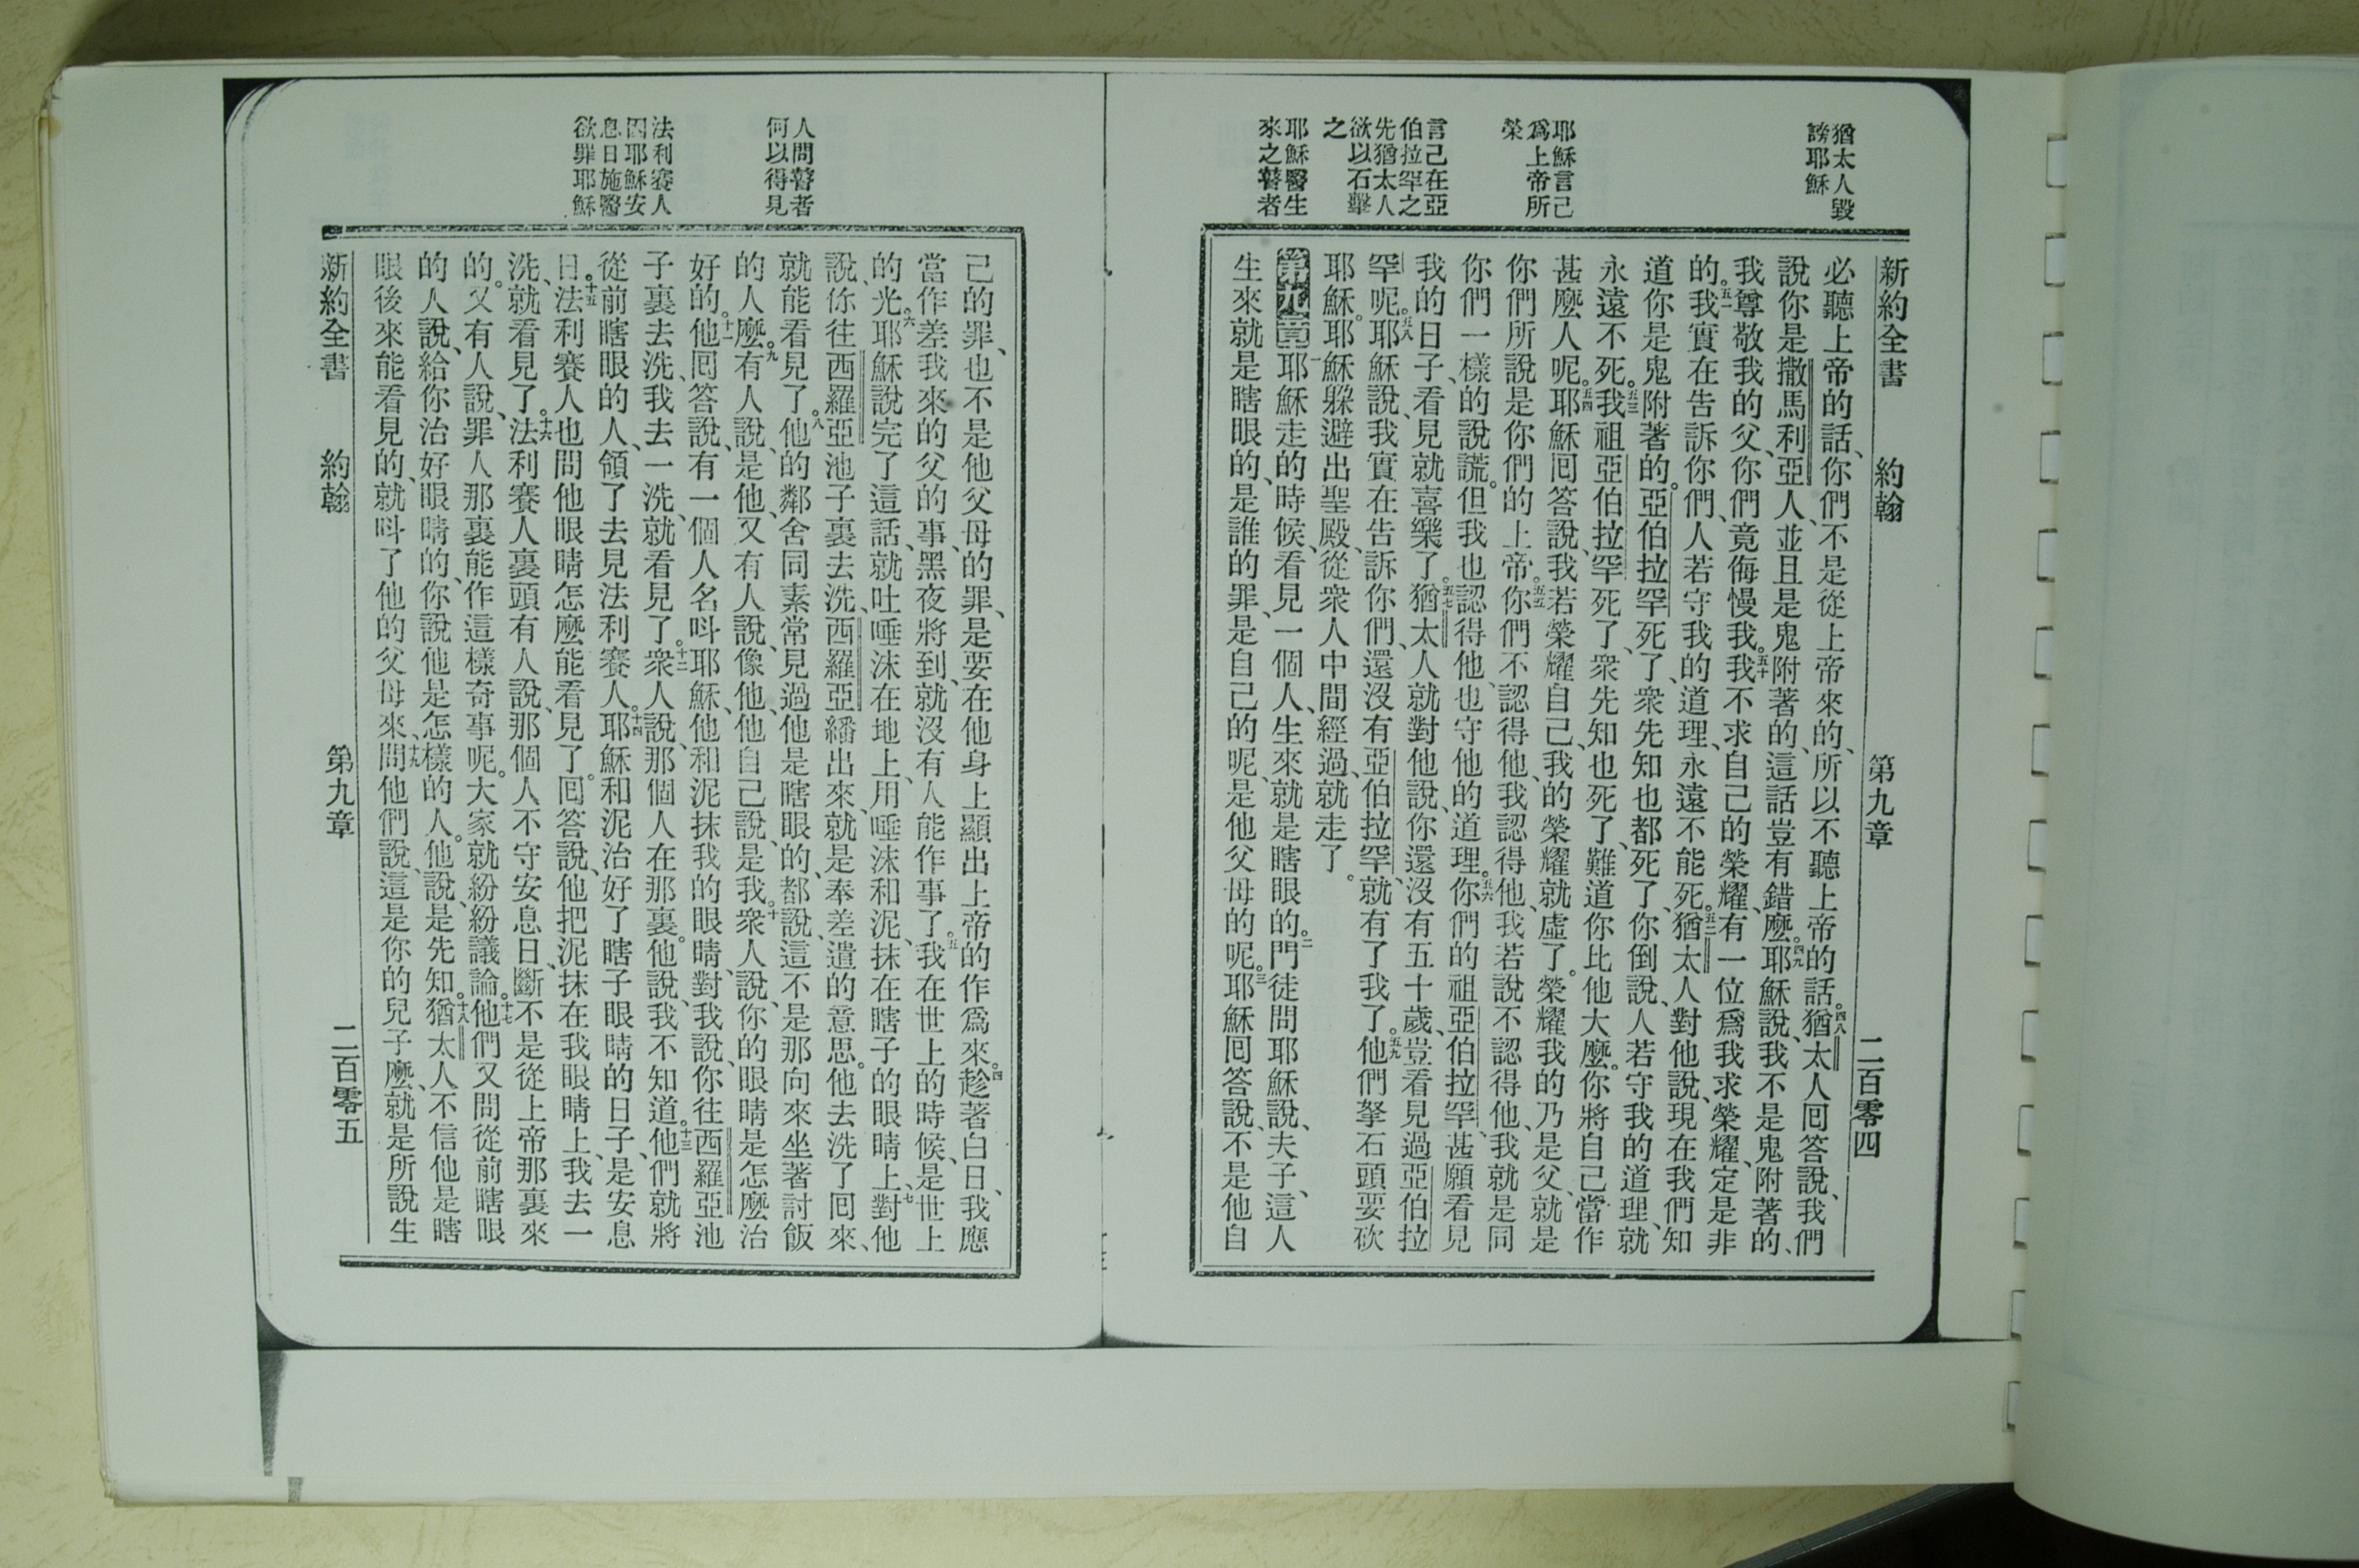 猶太人毀
謗耶穌
耶穌言己
爲上帝所
榮
言己在亞
伯拉罕之
先猶太人
欲以石擊
之
耶穌醫生
來之瞽者
新約全書 約翰 第九章 二百零四
必聽上帝的話、你們不是從上帝來的、所以不聽上帝的話。四八猶太人回答說、我們
說你是撒馬利亞人、並且是鬼附著的、這話豈有錯麽。四九耶穌說、我不是鬼附著的、
我尊敬我的父、你們竟侮慢我。五十我不求自己的榮耀、有一位爲我求榮耀、定是非
的。五一我實在告訴你們、人若守我的道理、永遠不能死。五二猶太人對他說、現在我們知
道你是鬼附著的。亞伯拉罕死了、衆先知也都死了、你倒說、人若守我的道理、就
永遠不死。五三我祖亞伯拉罕死了、衆先知也死了、難道你比他大麽。你將自己當作
甚麽人呢。五四耶穌回答說、我若榮耀自己、我的榮耀就虛了。榮耀我的乃是父、就是
你們所說是你們的上帝。五五你們不認得他、我認得他、我若說不認得他、我就是同
你們一樣的說謊。但我也認得他、也守他的道理。五六你們的祖亞伯拉罕、甚願看見
我的日子、看見就喜樂了。五七猶太人就對他說、你還沒有五十歲、豈看見過亞伯拉
罕呢。五八耶穌說、我實在告訴你們、還沒有亞伯拉罕、就有了我了。五九他們拏石頭要砍
耶穌。耶穌躲避出聖殿、從衆人中間經過、就走了。
第九章 一耶穌走的時候、看見一個人、生來就是瞎眼的。二門徒問耶穌說、夫子、這人
生來就是瞎眼的、是誰的罪、是自己的呢、是他父母的呢。三耶穌回答說、不是他自
人問瞽者
何以得見
法利賽人
因耶穌安
息日施醫
欲罪耶穌
己的罪、也不是他父母的罪、是要在他身上顯出上帝的作爲來。四趁著白日、我應
當作差我來的父的事、黑夜將到、就沒有人能作事了。五我在世上的時候、是世上
的光。六耶穌說完了這話、就吐唾沫在地上、用唾沫和泥、抹在瞎子的眼睛上、七對他
說、你往西羅亞池子裏去洗、西羅亞繙出來、就是奉差遣的意思。他去洗了回來、
就能看見了。八他的鄰舍同素常見過他是瞎眼的、都說、這不是那向來坐著討飯
的人麽。九有人說、是他、又有人說、像他、他自己說、是我。十衆人說、你的眼睛是怎麽治
好的。十一他回答說、有一個人名呌耶穌、他和泥抹我的眼睛、對我說、你往西羅亞池
子裏去洗、我去一洗、就看見了。十二衆人說、那個人在那裏。他說、我不知道。十三他們就將
從前瞎眼的人、領了去見法利賽人。十四耶穌和泥治好了瞎子眼睛的日子、是安息
日。十五法利賽人也問他眼睛怎麽能看見了。回答說、他把泥抹在我眼睛上、我去一
洗、就看見了。十六法利賽人裏頭有人說、那個人不守安息日、斷不是從上帝那裏來
的。又有人說、罪人那裏能作這樣奇事呢。大家就紛紛議論。十七他們又問從前瞎眼
的人說、給你治好眼睛的、你說他是怎樣的人。他說、是先知。十八猶太人不信他是瞎
眼後來能看見的、就呌了他的父母來、十九問他們說、這是你的兒子麽、就是所說生
新約全書 約翰 第九章 二百零五